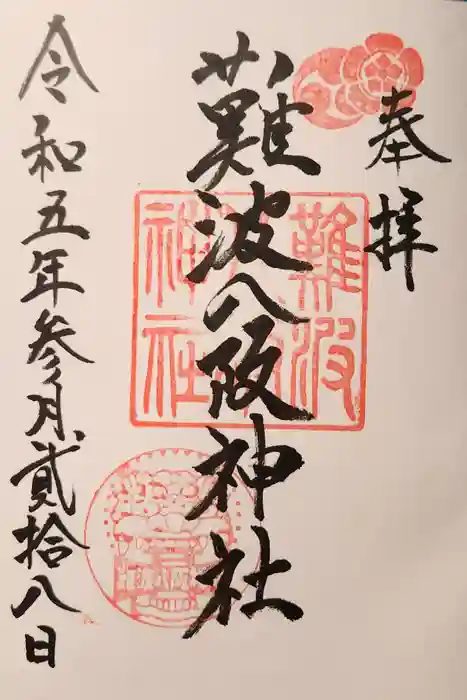 奉拝
難波八阪神社
令和五年参月貳拾八日
難波八阪神社